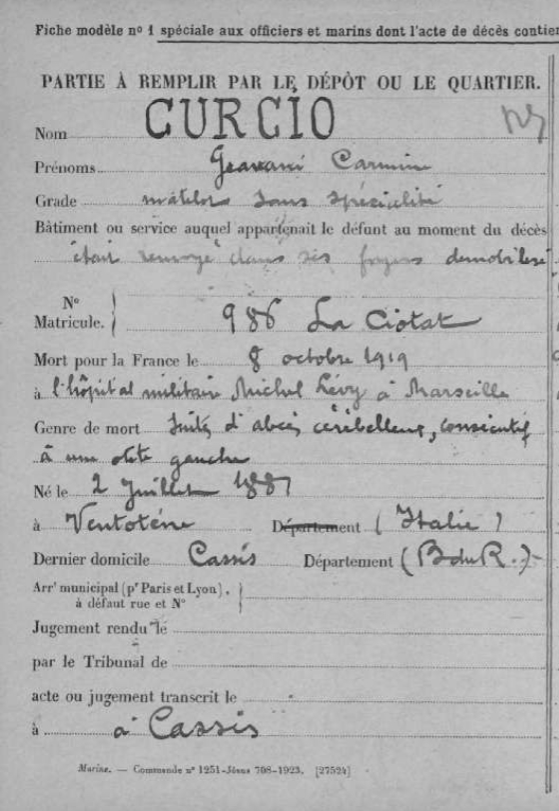 Fiche modèle n° 1 spéciale aux officiers et marins dont l'acte de décès contien
PARTIE À REMPLIR PAR LE DÉPÔT OU LE QUARTIER.
Nom CURCIO
Prénoms Carmine
Grade matelot sans spécialité
Bâtiment ou service auquel appartenait le défunt au moment du décès
était renvoyé dans ses foyers démobilisé
N° Matricule. 986 La Ciotat
Mort pour la France le 8 octobre 1919
à l'hôpital militaire Michel Lévy à Marseille
Genre de mort Suites d'abcès cérébelleux, consécutif
à une otite gauche
Né le 2 Juillet 1887
à Ventotène Département (Italie)
Dernier domicile Cassis Département (B du R.)
Arrt municipal (pr Paris et Lyon),
à défaut rue et N°
Jugement rendu le
par le Tribunal de
acte ou jugement transcrit le
à à Cassis
Marine. — Commande n° 1251-Jouve 708-1923. [27524]